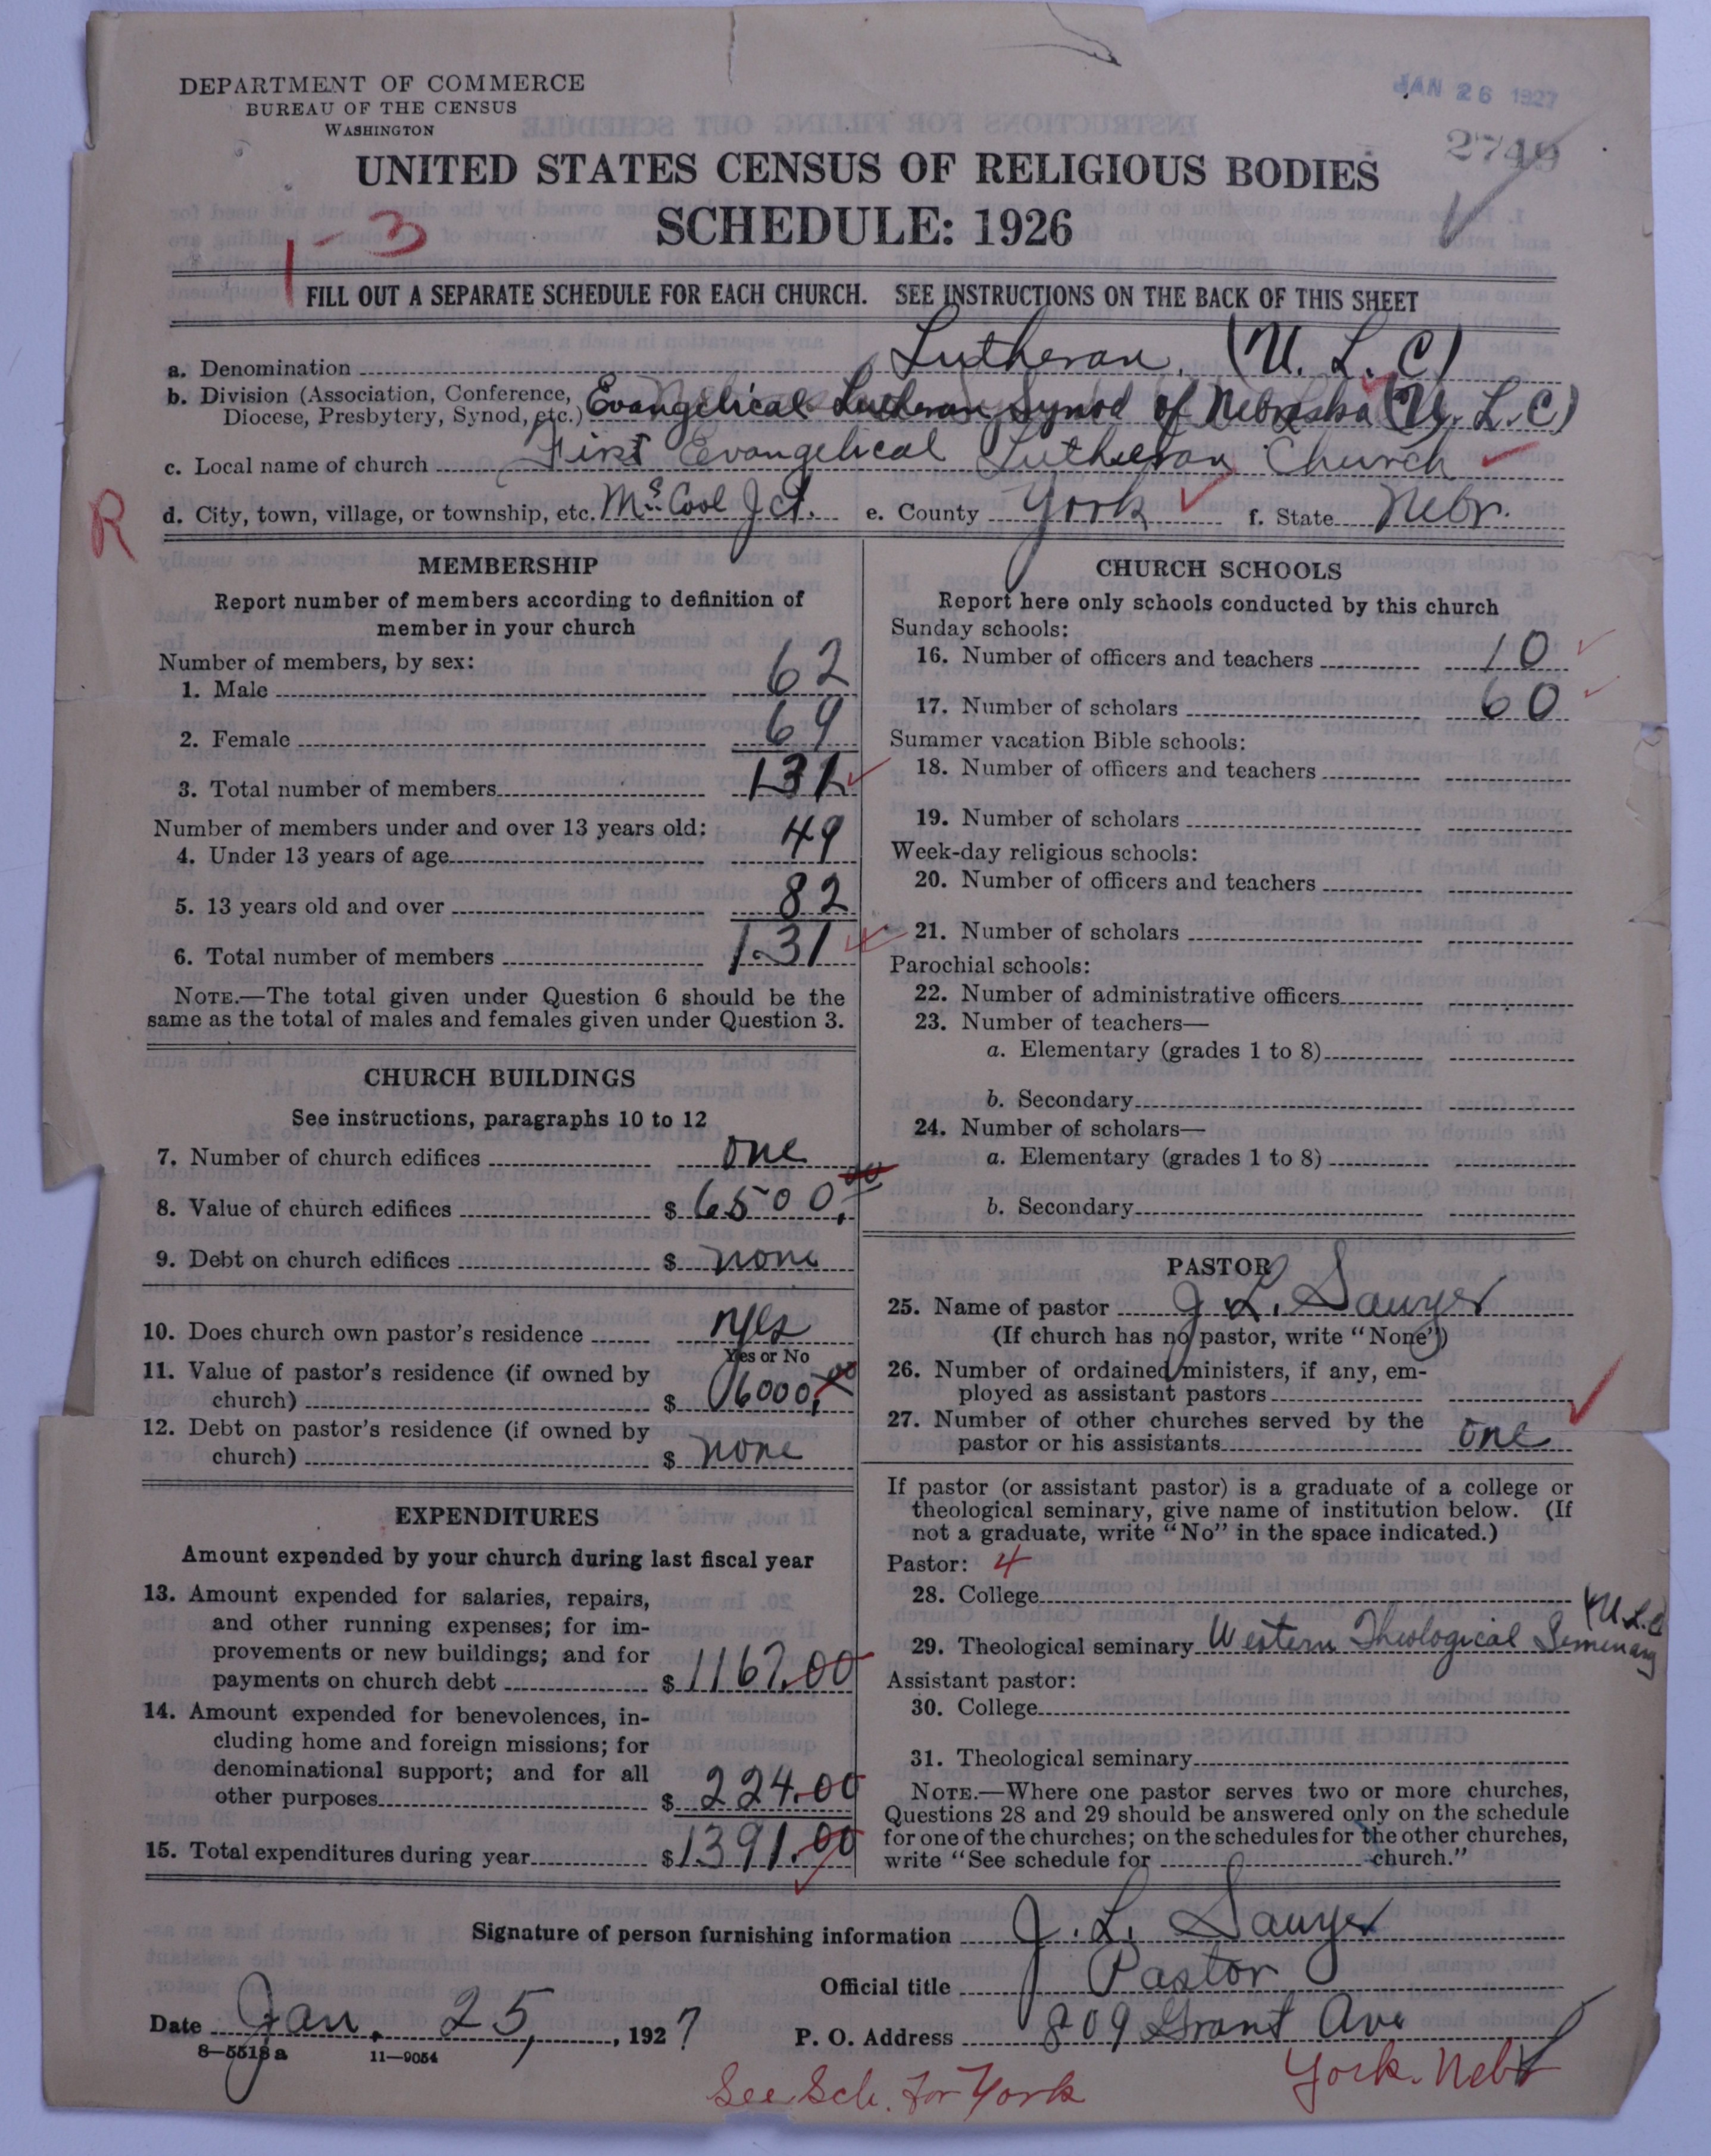 DEPARTMENT OF COMMERCE
BUREAU OF THE CENSUS
WASHINGTON
JAN 26 1927
2749
UNITED STATES CENSUS OF RELIGIOUS BODIES
SCHEDULE: 1926
1-3
FILL OUT A SEPARATE SCHEDULE FOR EACH CHURCH. SEE INSTRUCTIONS ON THE BACK OF THIS SHEET
a. Denomination Lutheran. (U. L. C)
b. Division (Association, Conference,
Diocese, Presbytery, Synod, etc.) Evangelical Lutheran Synod of Nebraska (U. L. C)
c. Local name of church First Evangelical Lutheran Church
R
d. City, town, village, or township, etc. McCool Jct. e. County York f. State Nebr.
MEMBERSHIP
Report number of members according to definition of
member in your church
Number of members, by sex:
1. Male 62
2. Female 69
3. Total number of members 131
Number of members under and over 13 years old:
4. Under 13 years of age 49
5. 13 years old and over 82
6. Total number of members 131
NOTE.—The total given under Question 6 should be the
same as the total of males and females given under Question 3.
CHURCH BUILDINGS
See instructions, paragraphs 10 to 12
7. Number of church edifices one
8. Value of church edifices $ 6500.00
9. Debt on church edifices $ none
10. Does church own pastor's residence yes
Yes or No
11. Value of pastor's residence (if owned by
church) $ 6000.00
12. Debt on pastor's residence (if owned by
church) $ none
EXPENDITURES
Amount expended by your church during last fiscal year
13. Amount expended for salaries, repairs,
and other running expenses; for im-
provements or new buildings; and for
payments on church debt $ 1167.00
14. Amount expended for benevolences, in-
cluding home and foreign missions; for
denominational support; and for all
other purposes $ 224.00
15. Total expenditures during year $ 1391.00
CHURCH SCHOOLS
Report here only schools conducted by this church
Sunday schools:
16. Number of officers and teachers 10
17. Number of scholars 60
Summer vacation Bible schools:
18. Number of officers and teachers
19. Number of scholars
Week-day religious schools:
20. Number of officers and teachers
21. Number of scholars
Parochial schools:
22. Number of administrative officers
23. Number of teachers—
a. Elementary (grades 1 to 8)
b. Secondary
24. Number of scholars—
a. Elementary (grades 1 to 8)
b. Secondary
PASTOR
25. Name of pastor J. L. Sawyer
(If church has no pastor, write "None")
26. Number of ordained ministers, if any, em-
ployed as assistant pastors
27. Number of other churches served by the
pastor or his assistants one
If pastor (or assistant pastor) is a graduate of a college or
theological seminary, give name of institution below. (If
not a graduate, write "No" in the space indicated.)
Pastor: 4
28. College
29. Theological seminary Western Theological Seminary (U.L.C
Assistant pastor:
30. College
31. Theological seminary
NOTE.—Where one pastor serves two or more churches,
Questions 28 and 29 should be answered only on the schedule
for one of the churches; on the schedules for the other churches,
write "See schedule for church."
Signature of person furnishing information J. L. Sawyer
Official title Pastor
Date Jan. 25, 1927 P. O. Address 809 Grant Ave
8—5518 a 11—9054
See Sch. for York York. Nebr